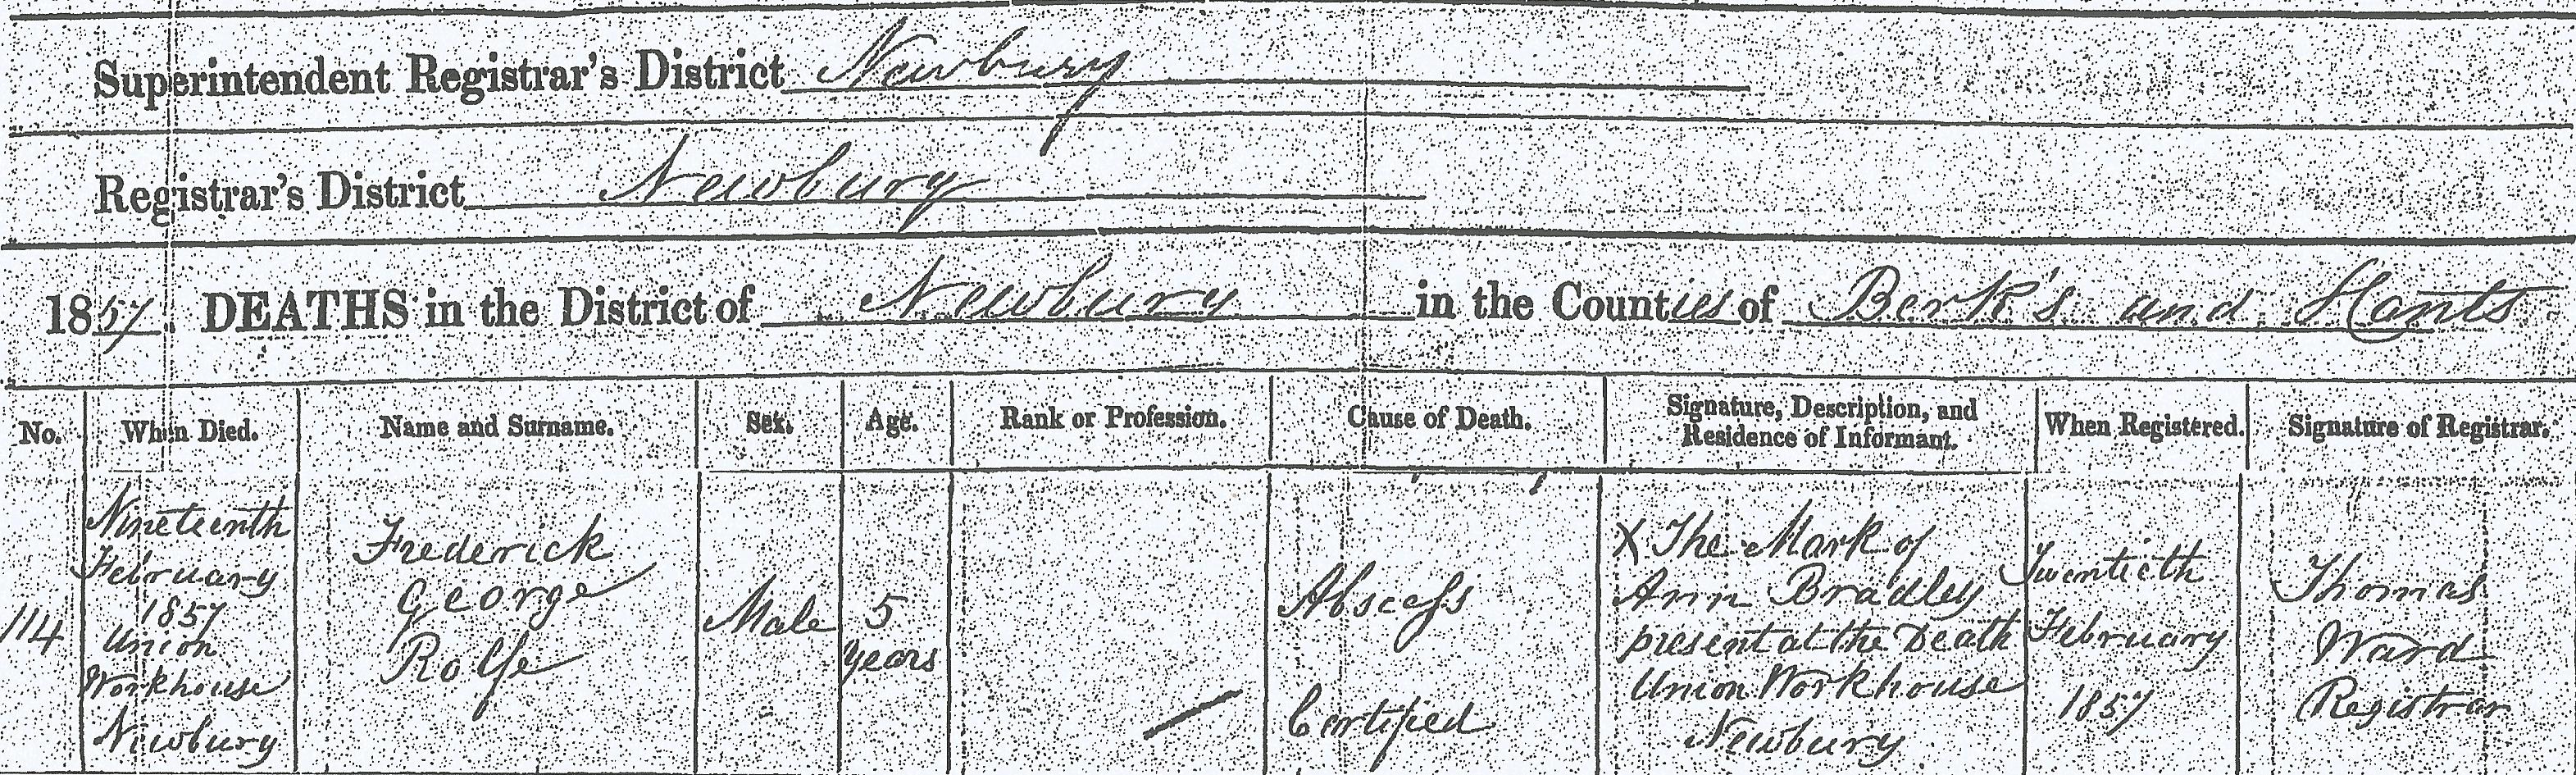 Superintendent Registrar's District Newbury
Registrar's District Newbury
1857. DEATHS in the District of Newbury in the Counties of Berk's and Hants
No. When Died. Name and Surname. Sex. Age. Rank or Profession. Cause of Death. Signature, Description, and Residence of Informant. When Registered. Signature of Registrar.
114
Nineteenth
February
1857
Union
Workhouse
Newbury
Frederick
George
Rolfe
Male
5
years
Abscess
Certified
X The Mark of
Ann Bradley
present at the Death
Union Workhouse
Newbury
Twentieth
February
1857
Thomas
Ward
Registrar